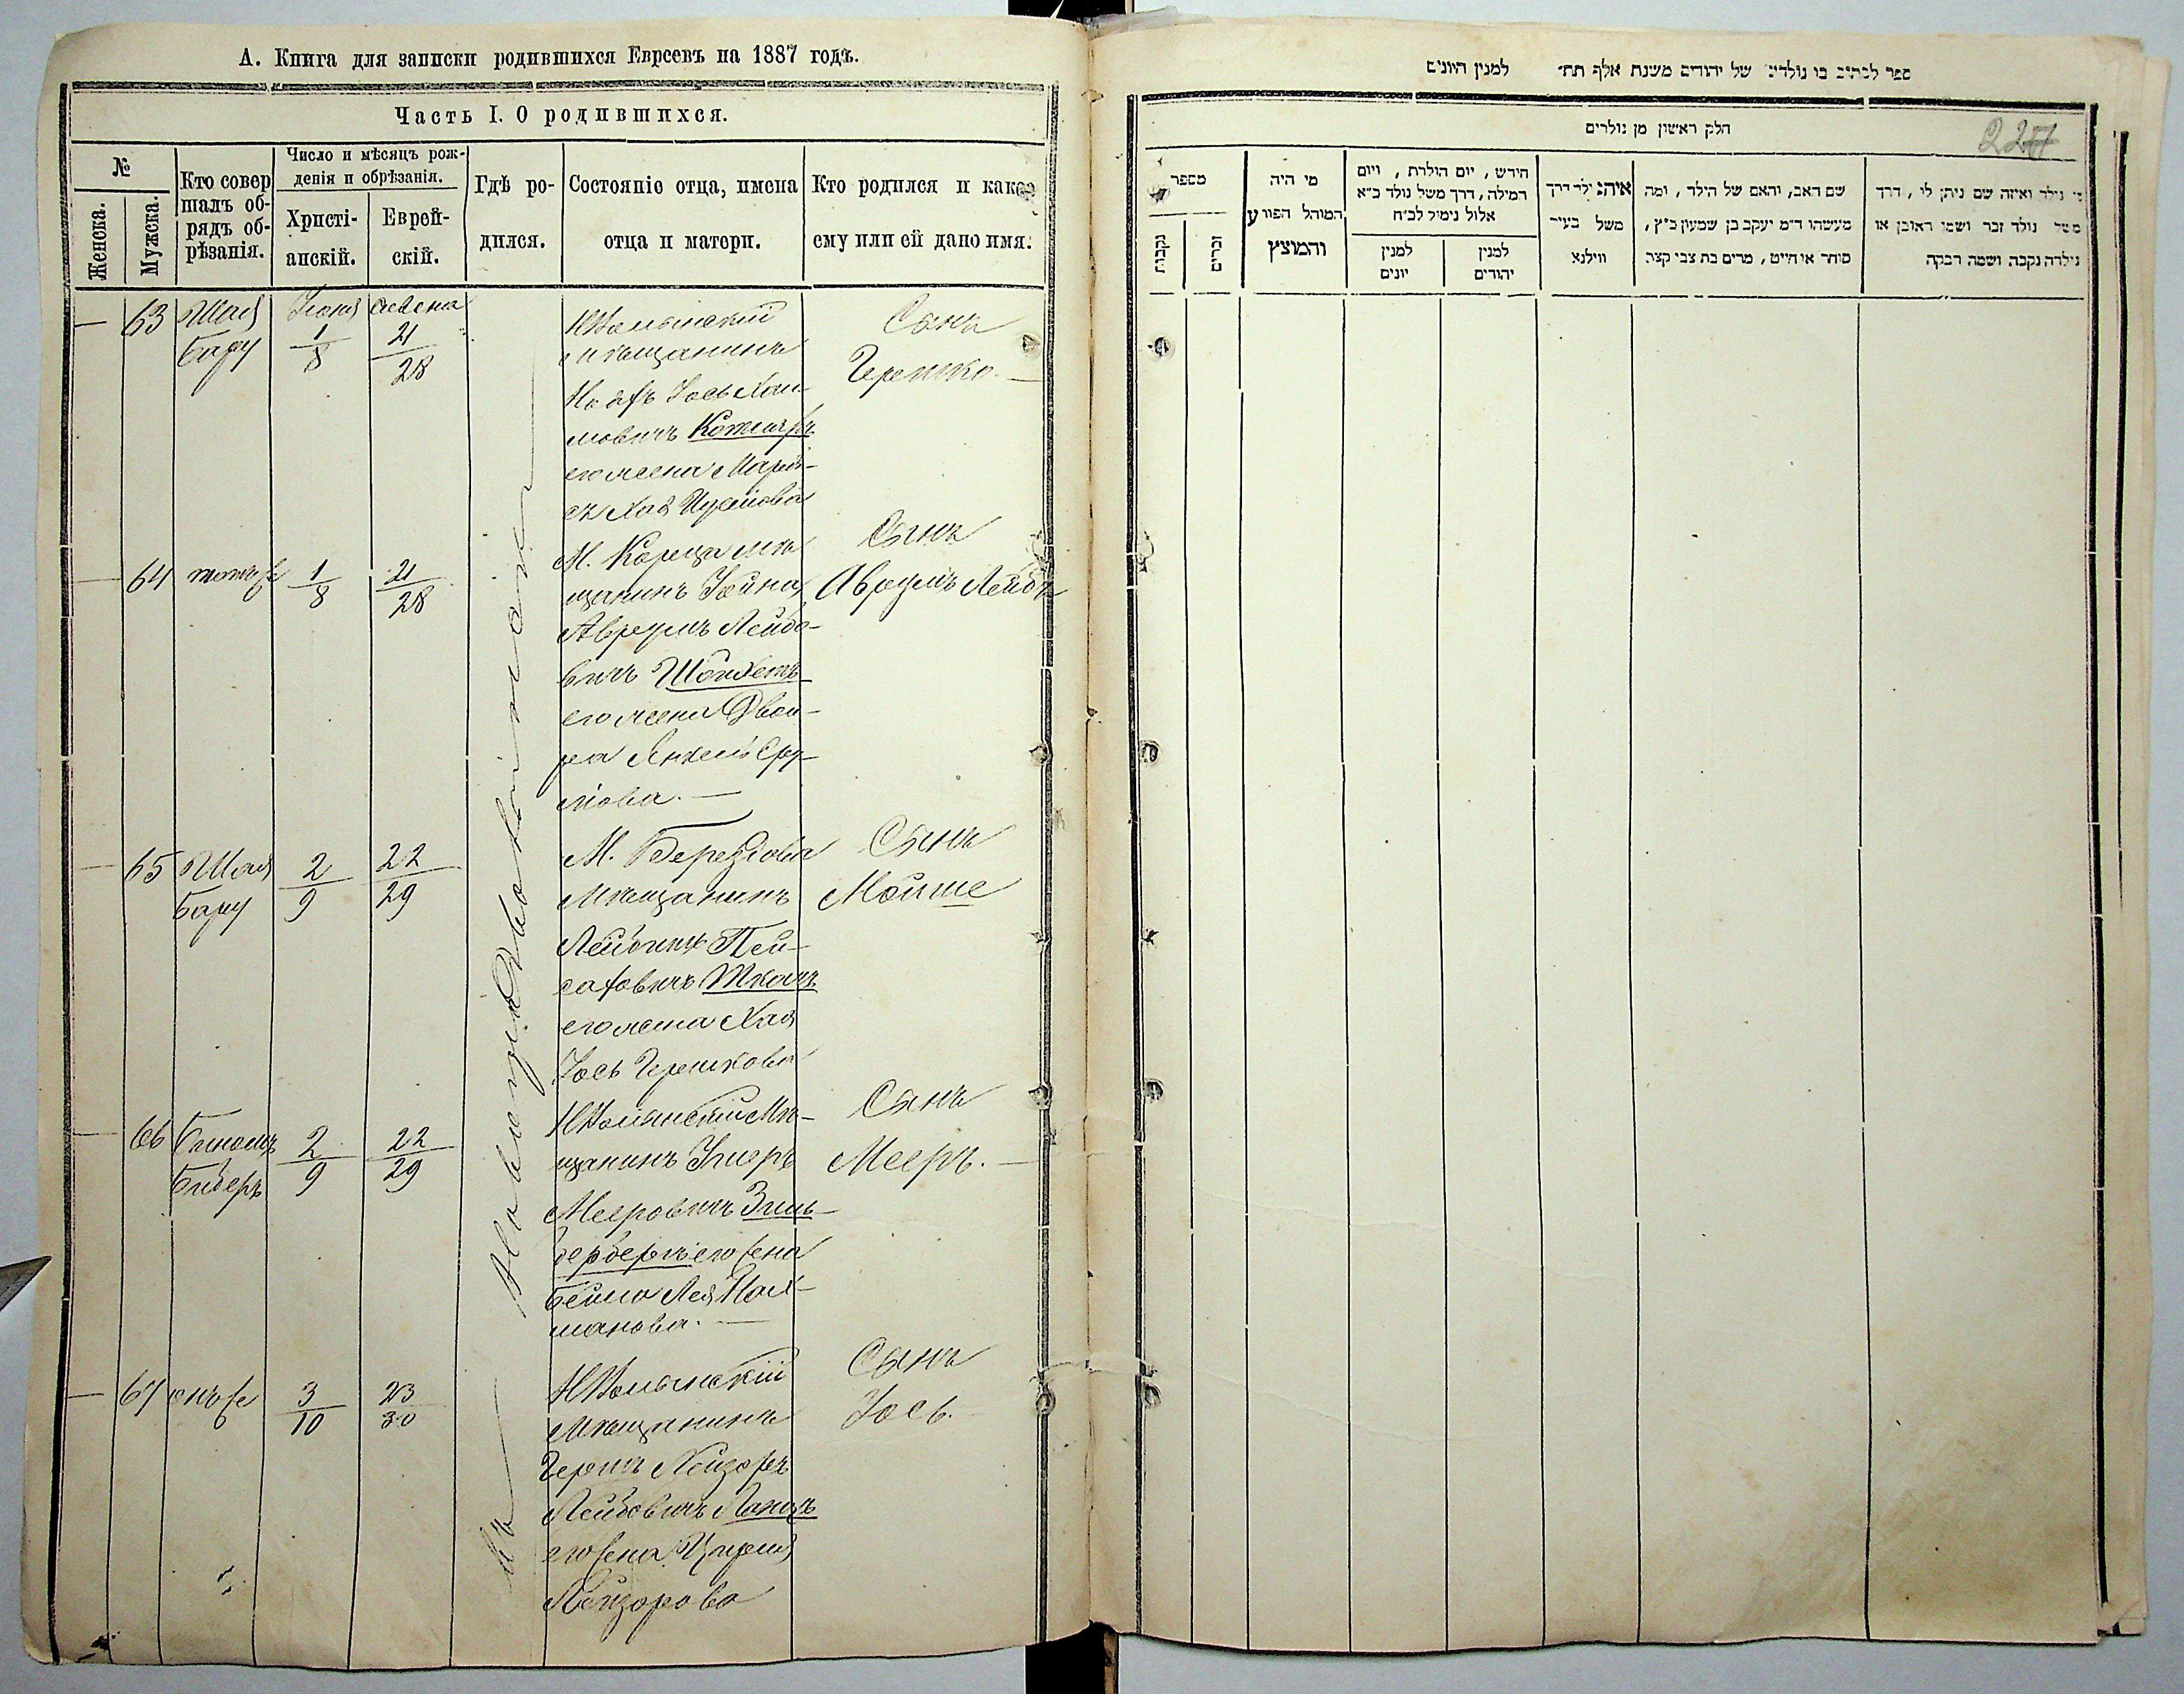 А. Книга для записки родившихся Евреевъ на 1887 годъ.
Часть I. О родившихся.
№
Женска.
Мужска.
Кто совер
шалъ об-
рядъ об-
рѣзанія.
Число и мѣсяцъ рож-
денія и обрѣзанія.
Христі-
анскій.
Еврей-
скій.
Гдѣ ро-
дился.
Состояніе отца, имена
отца и матери.
Кто родился и какое
ему или ей дано имя.
63
Шая
Бару
Іюня
1
8
Сивена
21
28
НВолынскій
мѣщанинъ
Іось Хаи-
мовичъ
его жена
Сынъ
Гершко.
64
тотъ же
1
8
21
28
М. Корца мѣ
щанинъ
Авреумъ Лейбо-
вичъ Шойхетъ
его жена Двой-
ра Янкель Сру-
лова.
Сынъ
Авреумъ Лейбъ
65
Шая
Бару
2
9
22
29
М. Березова
Мѣщанинъ
Пей-
саховичъ Ткачъ
его жена Хая
Іось Гершкова
Сынъ
Мойше
66
Бидеръ
2
9
22
29
НВолынскій Мѣ-
щанинъ
Мееровичъ Зиль-
бербергъ его жена
Бейла Лея Нах-
манова.
Сынъ
Мееръ.
67
онъ же
3
10
23
30
НВолынскій
Мѣщанинъ
Гершъ Лейзоръ
Лейбовичъ
его жена
Лейзорова
Сынъ
Іось.
Въ
ספר לכתוב בו נולדים של יהודים משנת אלף תת״ למנין היונים
חלק ראשון מן נולדים
227
מספר
נקבות
זכרים
מי היה
המוהל הפורע
והמוצץ
חידש, יום הולדת, ויום
המילה, דרך משל נולד כ״א
אלול נימול לכ״ח
למנין
יונים
למנין
יהודים
איהנ ילד דרך
משל בעיר
ווילנא
שם האב, והאם של הילד, ומה
מעשהו ד״מ יעקב בן שמעון כ״ץ,
סוחר או חייט, מרים בת צבי קצה
מי נולד ואיזה שם ניתן לו, דרך
משל נולד זכר ושמו ראובן או
נילדה נקבה ושמה רבקה